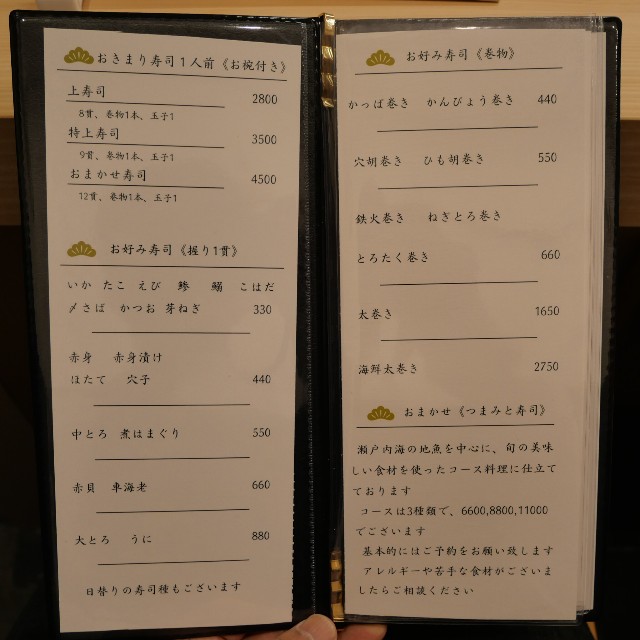 おきまり寿司1人前《お椀付き》
上寿司 2800
8貫、巻物1本、玉子1
特上寿司 3500
9貫、巻物1本、玉子1
おまかせ寿司 4500
12貫、巻物1本、玉子1
お好み寿司《握り1貫》
いか たこ えび 鯵 鰯 こはだ
〆さば かつお 芽ねぎ 330
赤身 赤身漬け
ほたて 穴子 440
中とろ 煮はまぐり 550
赤貝 車海老 660
大とろ うに 880
日替りの寿司種もございます
お好み寿司《巻物》
かっぱ巻き かんぴょう巻き 440
穴胡巻き ひも胡巻き 550
鉄火巻き ねぎとろ巻き
とろたく巻き 660
太巻き 1650
海鮮太巻き 2750
おまかせ《つまみと寿司》
瀬戸内海の地魚を中心に、旬の美味
しい食材を使ったコース料理に仕立て
ております
コースは3種類で、6600,8800,11000
でございます
基本的にはご予約をお願い致します
アレルギーや苦手な食材がございま
したらご相談ください